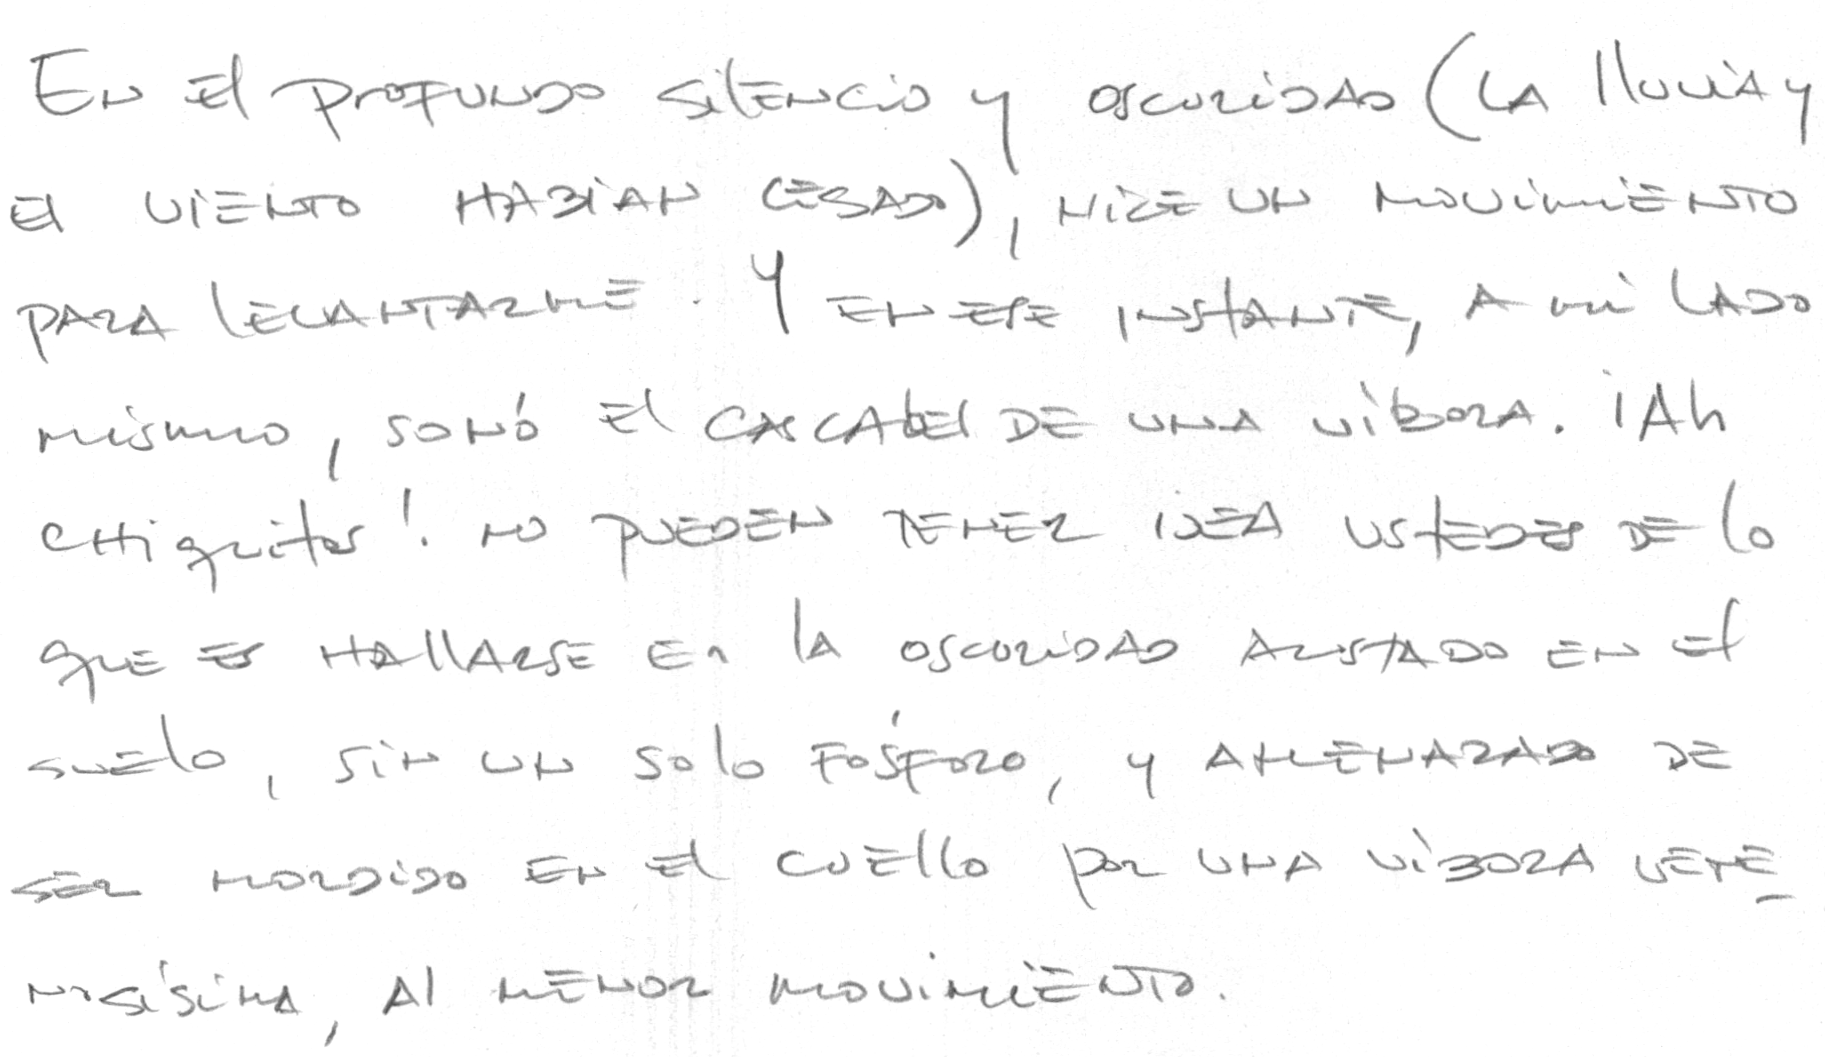 En el profundo silencio y oscuridad (la lluvia y
el viento habían cesado), hice un movimiento
para levantarme. Y en ese instante, a mi lado
mismo, sonó el cascabel de una víbora. ¡Ah
chiquitos! No pueden tener idea ustedes de lo
que es hallarse en la oscuridad acostado en el
suelo, sin un solo fósforo, y amenazado de
ser mordido en el cuello por una víbora vene
nosísima, al menor movimiento.